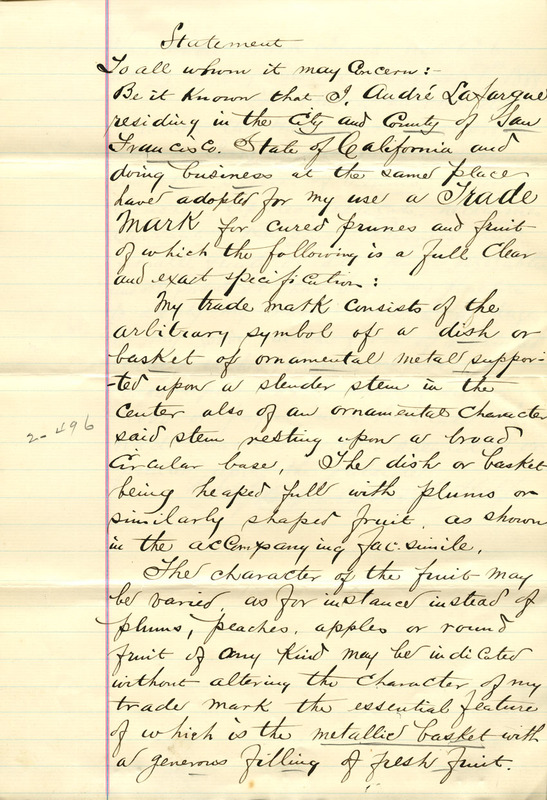 Statement
To all whom it may Concern:-
Be it Known that I, André Lafargue
residing in the City and County of San
Francisco. State of California and
doing business at the same place
have adopted for my use a Trade
Mark for cured prunes and fruit
of which the following is a full Clear
and exact specification:
My trade mark consists of the
arbitrary symbol of a dish or
basket of ornamental metal suppor-
-ted upon a slender stem in the
Center also of an ornamental Character
said stem resting upon a broad
Circular base, The dish or basket
being heaped full with plums or
similarly shaped fruit, as shown
in the accompanying fac-simile.
2-496
The character of the fruit may
be varied, as for instance instead of
plums, peaches, apples or round
fruit of any Kind may be indicated
without altering the character of my
trade mark the essential feature
of which is the metallic basket with
a generous filling of fresh fruit.